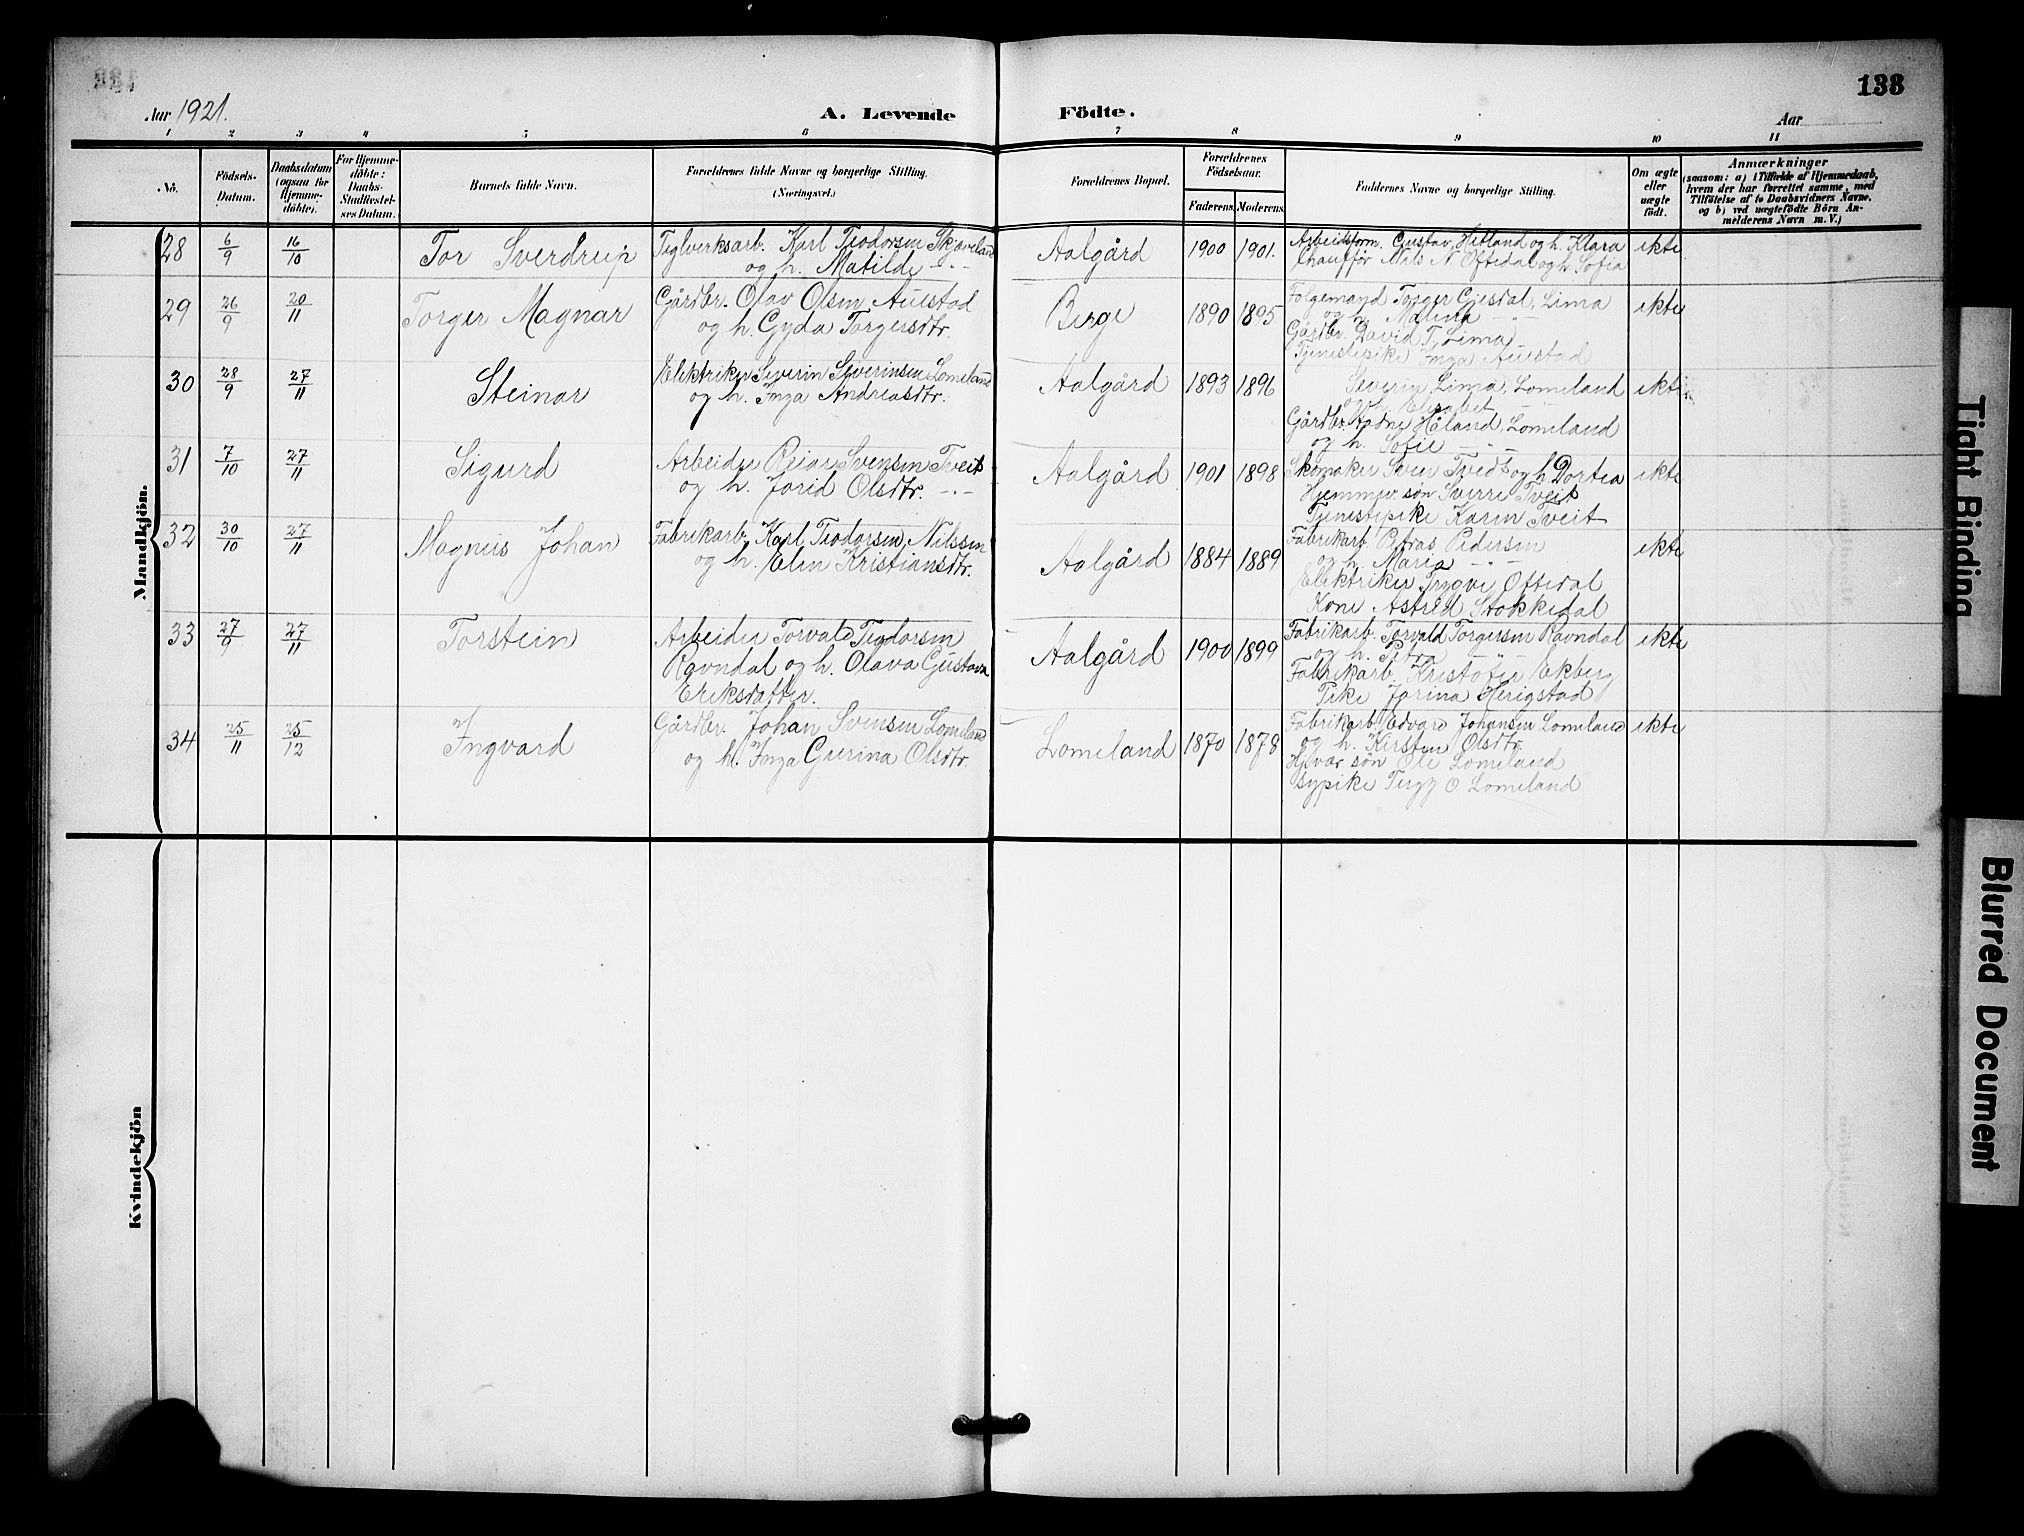 133
Aar 1921.
A. Levende Födte.
Aar
1 2 3 4 5 6 7 8 9 10 11
No.
Födsels-
Datum.
Daabsdatum
(ogsaa for
Hjemme-
döbte).
For Hjemme-
döbte:
Daabs-
Stadfæstel-
ses Datum.
Barnets fulde Navn.
Forældrenes fulde Navne og borgerlige Stilling.
(Næringsvei.)
Forældrenes Bopæl.
Forældrenes
Födselsaar.
Faderens Moderens
Faddernes Navne og borgerlige Stilling.
Om ægte
eller
uægte
födt.
Anmærkninger
(saasom: a) i Tilfælde af Hjemmedaab,
hvem der har forrettet samme, med
Tilföielse af to Daabsvidners Navne,
og b) ved uægtefödte Börn An-
melderens Navn m. V.)
Mandkjön.
28 6/9 16/10 Tor Sverdrup
Teglverksarb. Karl Teodorsen Skjæveland
og h. Matilde -"-
Aalgård 1900 1901.
Arbeidsform. Gustav Hetland og h. Klara
Chauffør Nils N Oftedal og h Sofia
ekte
29 26/9 20/11 Torger Magnar
Gårdbr. Olav Olsen Auestad
og h. Gyda Torgersdtr.
Berge 1890 1895
Følgemand Torger Gjesdal, Lima
og h. Malena -"-
Gårdbr. David T. Lima
Tjenestepike Inga Auestad
ekte
30 28/9 27/11 Steinar
Elektriker Severin Severinsen Lomeland
og h. Inga Andreasdtr.
Aalgård 1893 1896
Severin Lima, Lomeland
og h. Elisabet
Gårdbr. Ådne Håland, Lomeland
og h. Sofie -"-
ekte
31 7/10 27/11 Sigurd
Arbeider Reiar Svensen Tveit
og h. Jorid Olsdtr. -"-
Aalgård 1901 1898
Skomaker Sven Tvedt og h Dortea
Hjemmev. søn Sverre Tveit
Tjenestepike Karen Tveit
ekte
32 30/10 27/11 Magnus Johan
Fabrikarb. Karl Teodorsen Nilssen
og h. Elen Kristiansdtr.
Aalgård 1884 1889
Fabrikarb. Petras Pedersen
og h. Maria -"-
Elektriker Trygve Oftedal
Kone Astrid Stokkedal
ekte
33 27/9 27/11 Torstein
Arbeider Torvald Teodorsen
Ravndal og h. Olava Gustava
Eriksdatter.
Aalgård 1900 1899
Fabrikarb. Torvald Torgersen Ravndal
og h. Petra -"-
Fabrikarb. Kristofer Ekberg
Pike Jorina Herigstad
ekte
34 25/11 25/12 Ingvard
Gårdbr. Johan Svensen Lomeland
og h. Inga Gurina Olsdtr.
Lomeland 1870 1878
Fabrikarb. Edvard Johansen Lomeland
og h. Kirsten Olsdtr.
Hjvær. søn Ole Lomeland
sypike O Lomeland
ekte
Kvindekjön
Tight Binding
Blurred Document